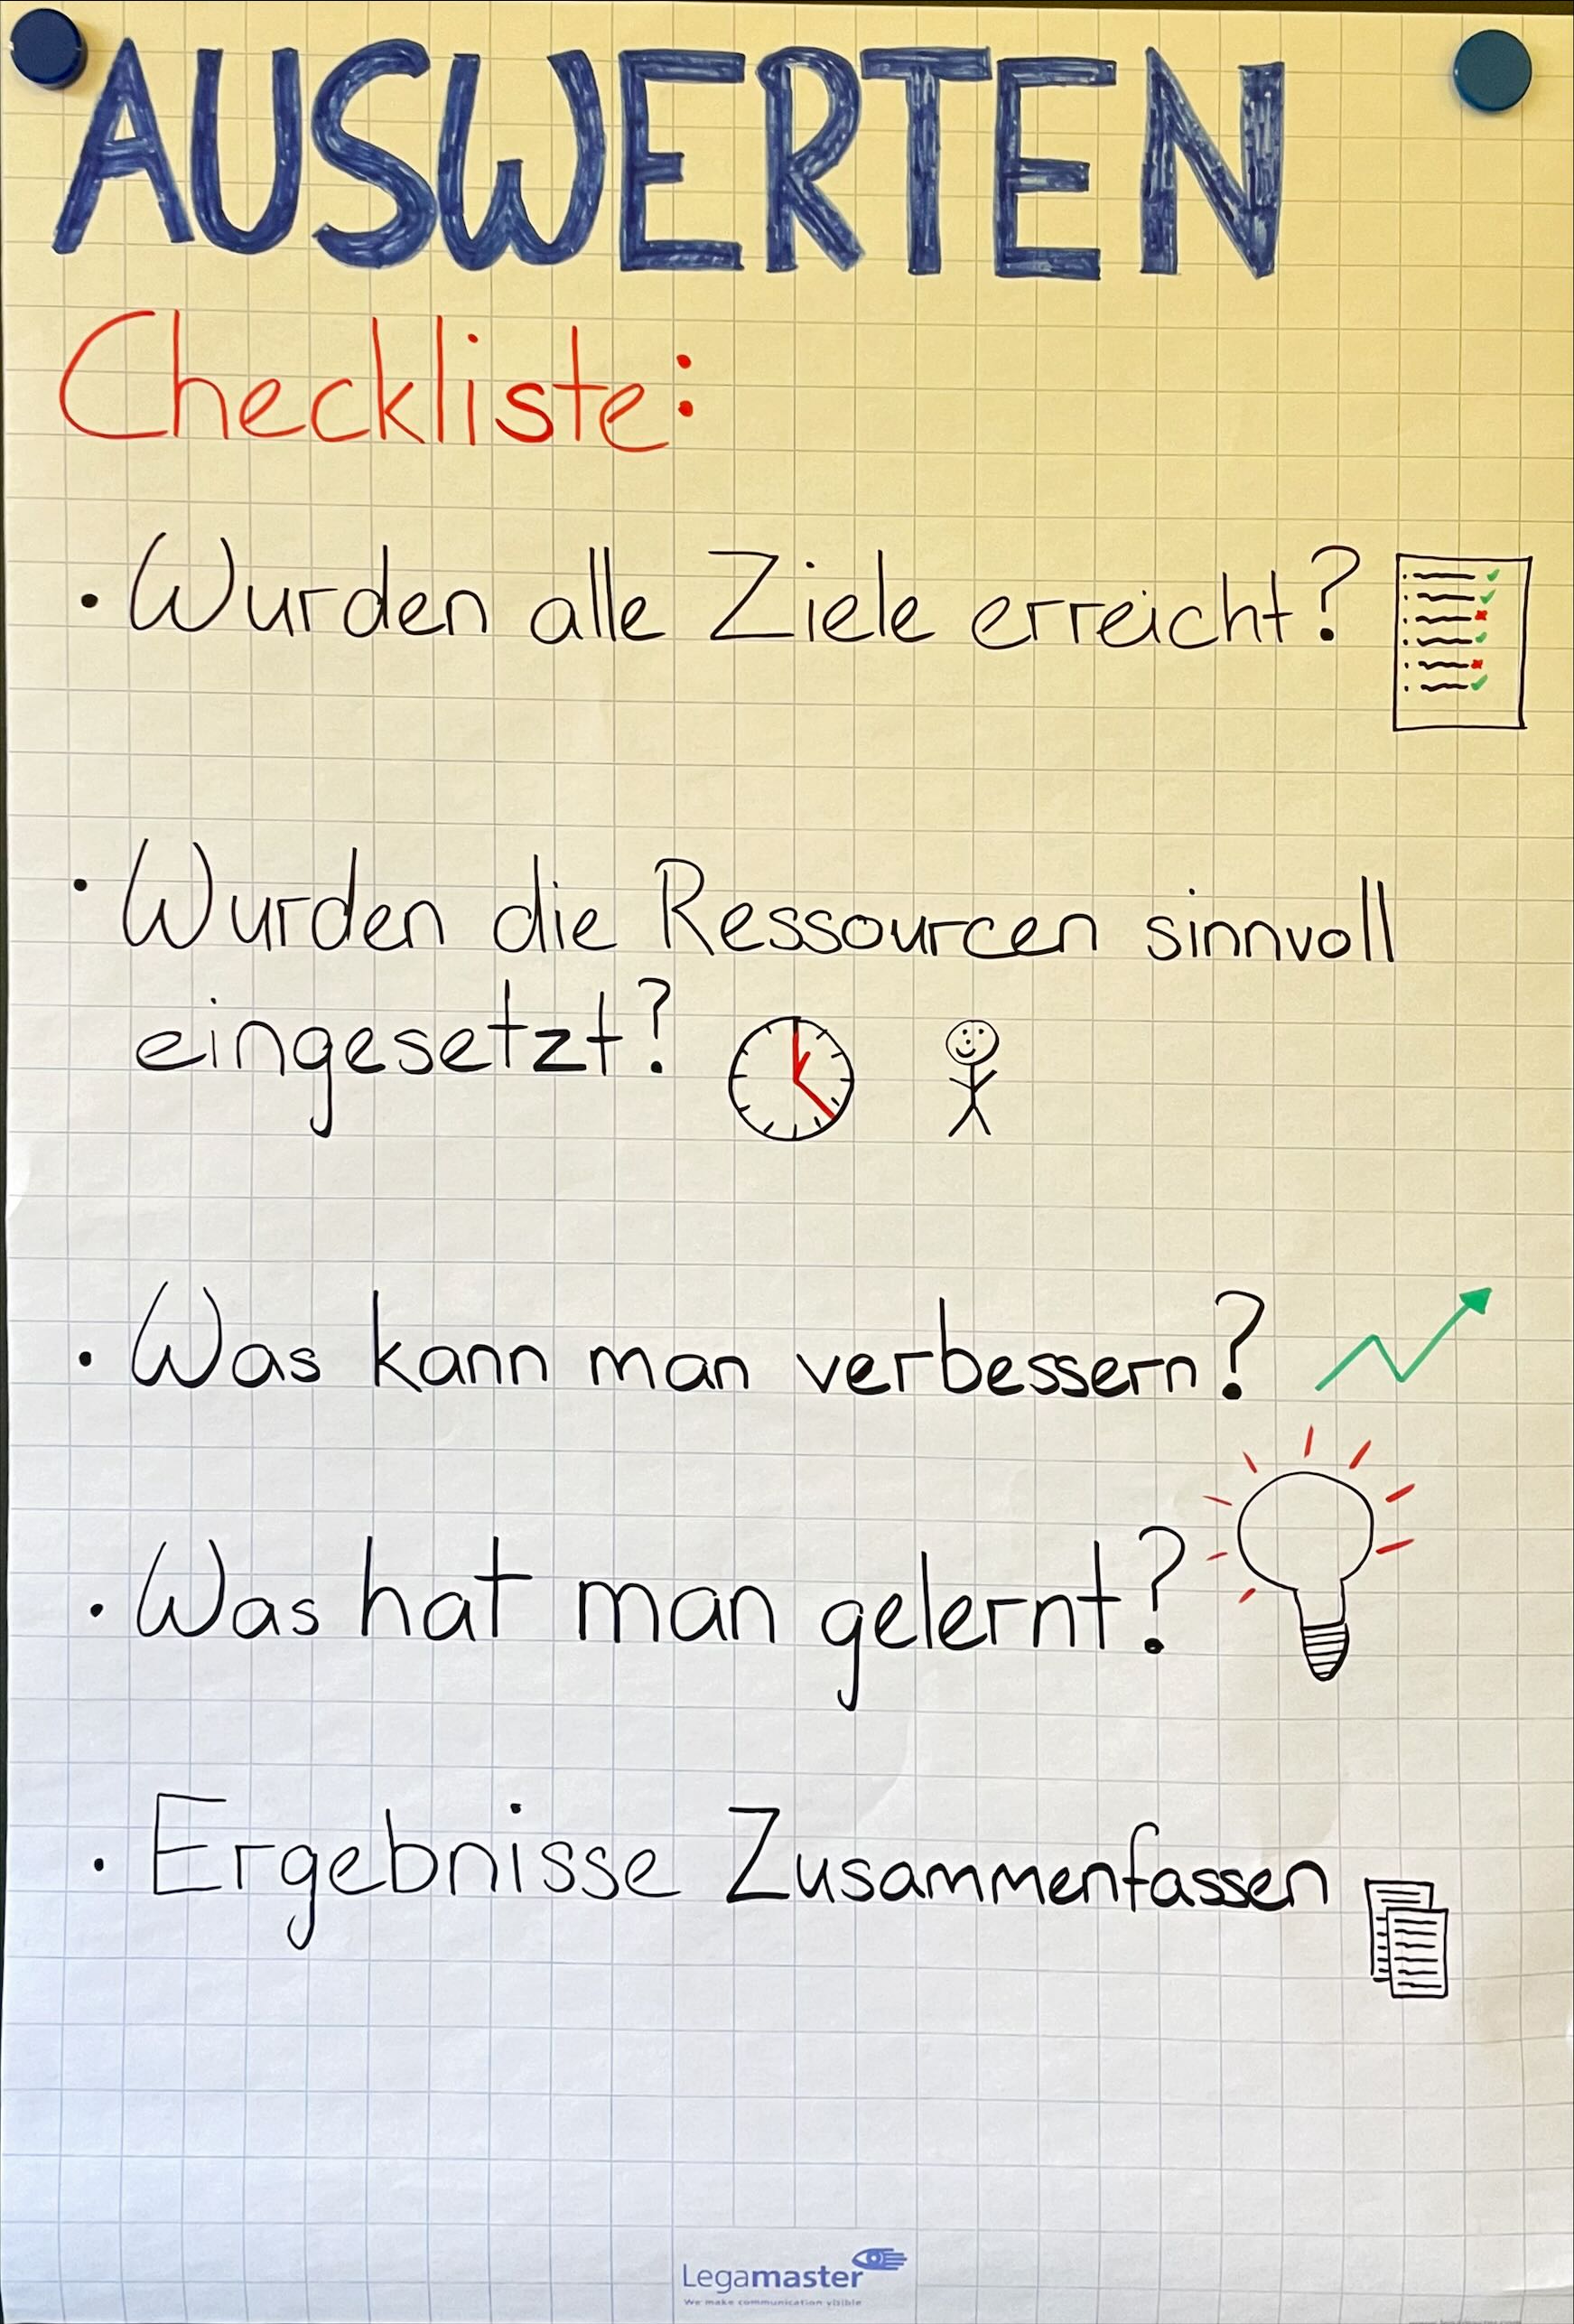 AUSWERTEN
Checkliste:
• Wurden alle Ziele erreicht?
• Wurden die Ressourcen sinnvoll
eingesetzt?
• Was kann man verbessern?
• Was hat man gelernt?
• Ergebnisse Zusammenfassen
Legamaster
We make communication visible